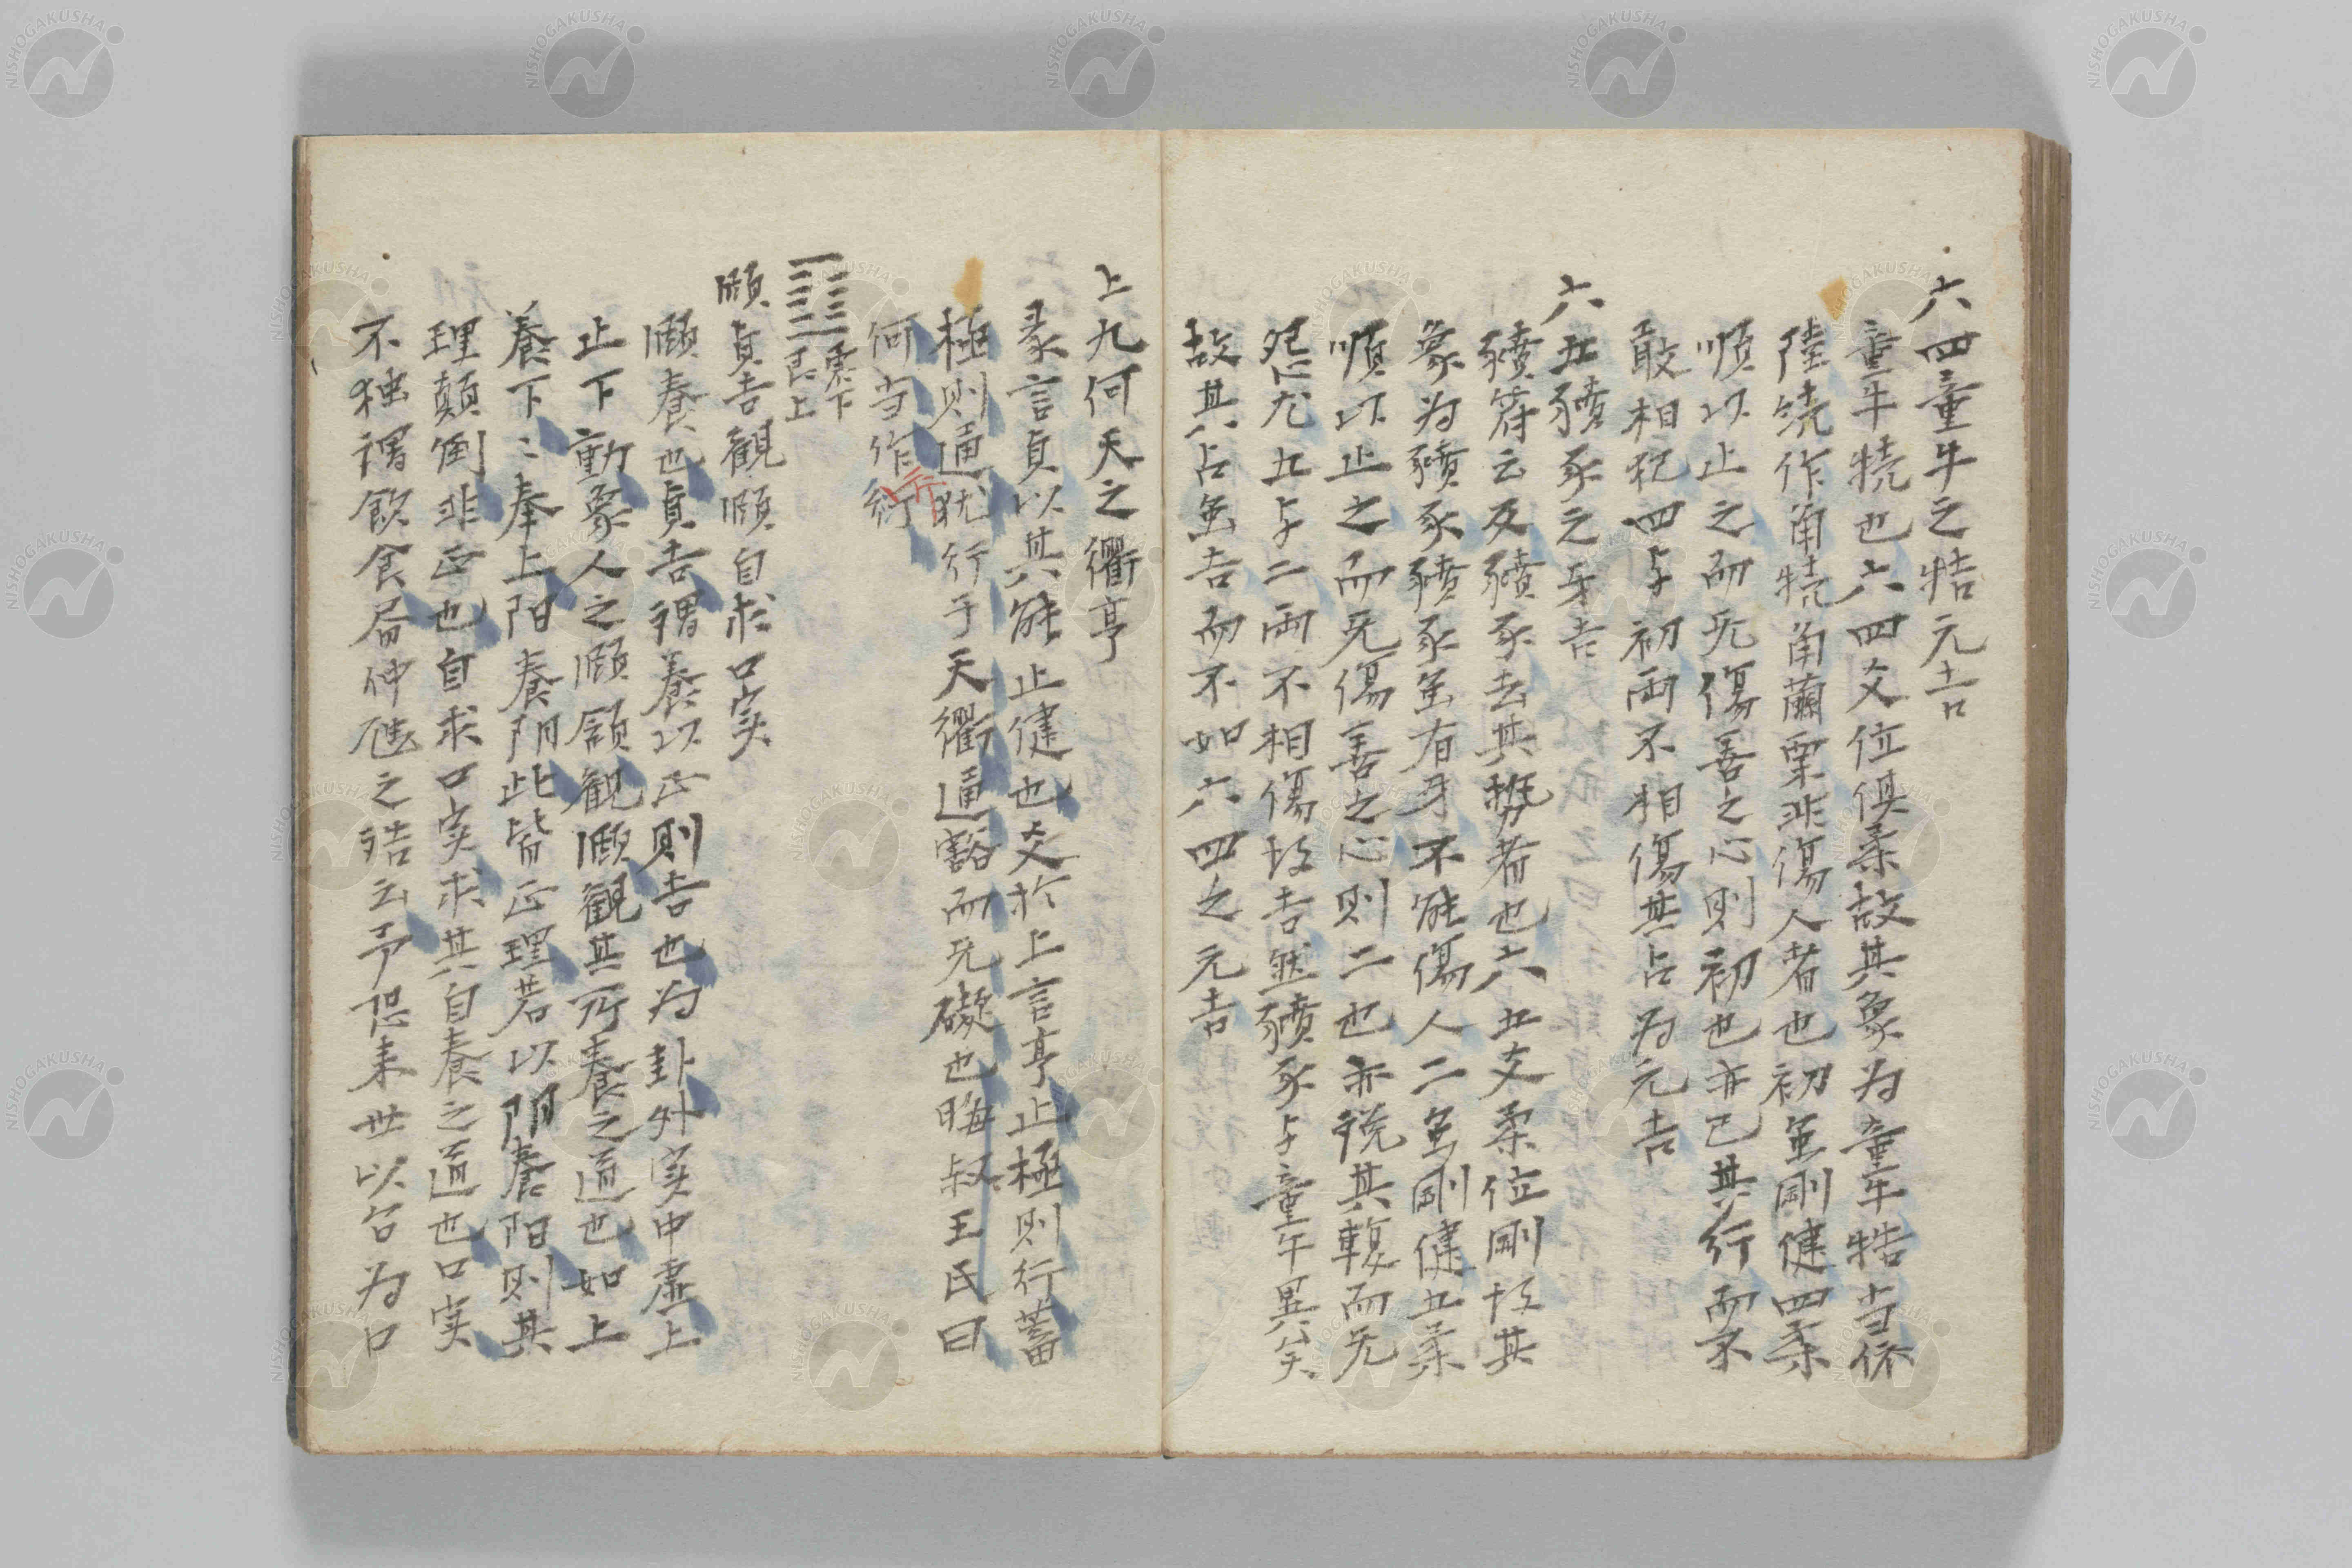 六四童牛之牿元吉
童牛犢也六四爻位俱柔故其象为童牛牿当依
陸績作角牿角繭栗非傷人者也初虽剛健四柔
順以止之而旡傷善之心則初也亦已其行而不
敢相犯四与初兩不相傷其占为元吉
六五豶豕之牙吉
豶符云反豶豕去其勢者也六五爻柔位剛故其
象为豶豕豶豕虽有牙不能傷人二虽剛健五柔
順以止之而旡傷善之心則二也亦説其輹而旡
怨尤五与二兩不相傷故吉然豶豕与童牛異矣
故其占虽吉而不如六四之元吉
上九何天之衢亨
彖言貞以其能止健也爻於上言亨止極則行蓄
極則通猶行于天衢通豁而旡礙也晦叔王氏曰
何当作行
震下艮上
頤貞吉観頤自求口实
頤養也貞吉謂養以正則吉也为卦外实中虛上
止下動象人之頤頷観頤観其所養之道也如上
養下〻奉上陽養陰此皆正理若以陰養陽則其
理顛倒非正也自求口实求其自養之道也口实
不独謂飲食屆仲虺之誥云予恐来世以台为口
NISHOGAKUSHA